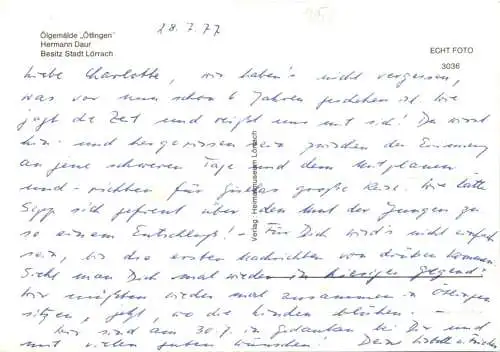 28.7.77
Ölgemälde „Ötlingen"
Hermann Daur
Besitz Stadt Lörrach
ECHT FOTO
3036
Liebe Charlotte, wir haben's nicht vergessen,
was vor nun schon 6 Jahren geschehen ist. Wie
jagt die Zeit und reißt uns mit sich! Du wirst
hin- und hergerissen sein zwischen der Erinnerung
an jene schweren Tage und dem Mitplanen
und -richten für Giselas große Reise. Wie hätte
Sepp sich gefreut über den Mut der Jungen zu
so einem Entschluß! - Für Dich wird's nicht einfach
sein, bis die ersten Nachrichten von drüben kommen.
Sieht man Dich mal wieder in hiesiger Gegend?
Wir müßten wieder mal zusammen in Ötlingen
sitzen, jetzt, wo die Linden blühen. -
Wir sind am 30.7. in Gedanken bei Dir und
mit vielen guten Wünschen! Deine
Verlag: Heimatmuseum Lörrach